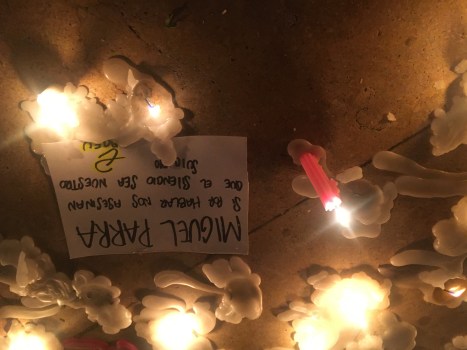 MIGUEL PARRA
SI POR HABLAR NOS ASESINAN
QUE EL SILENCIO SEA NUESTRO
SUICIDIO